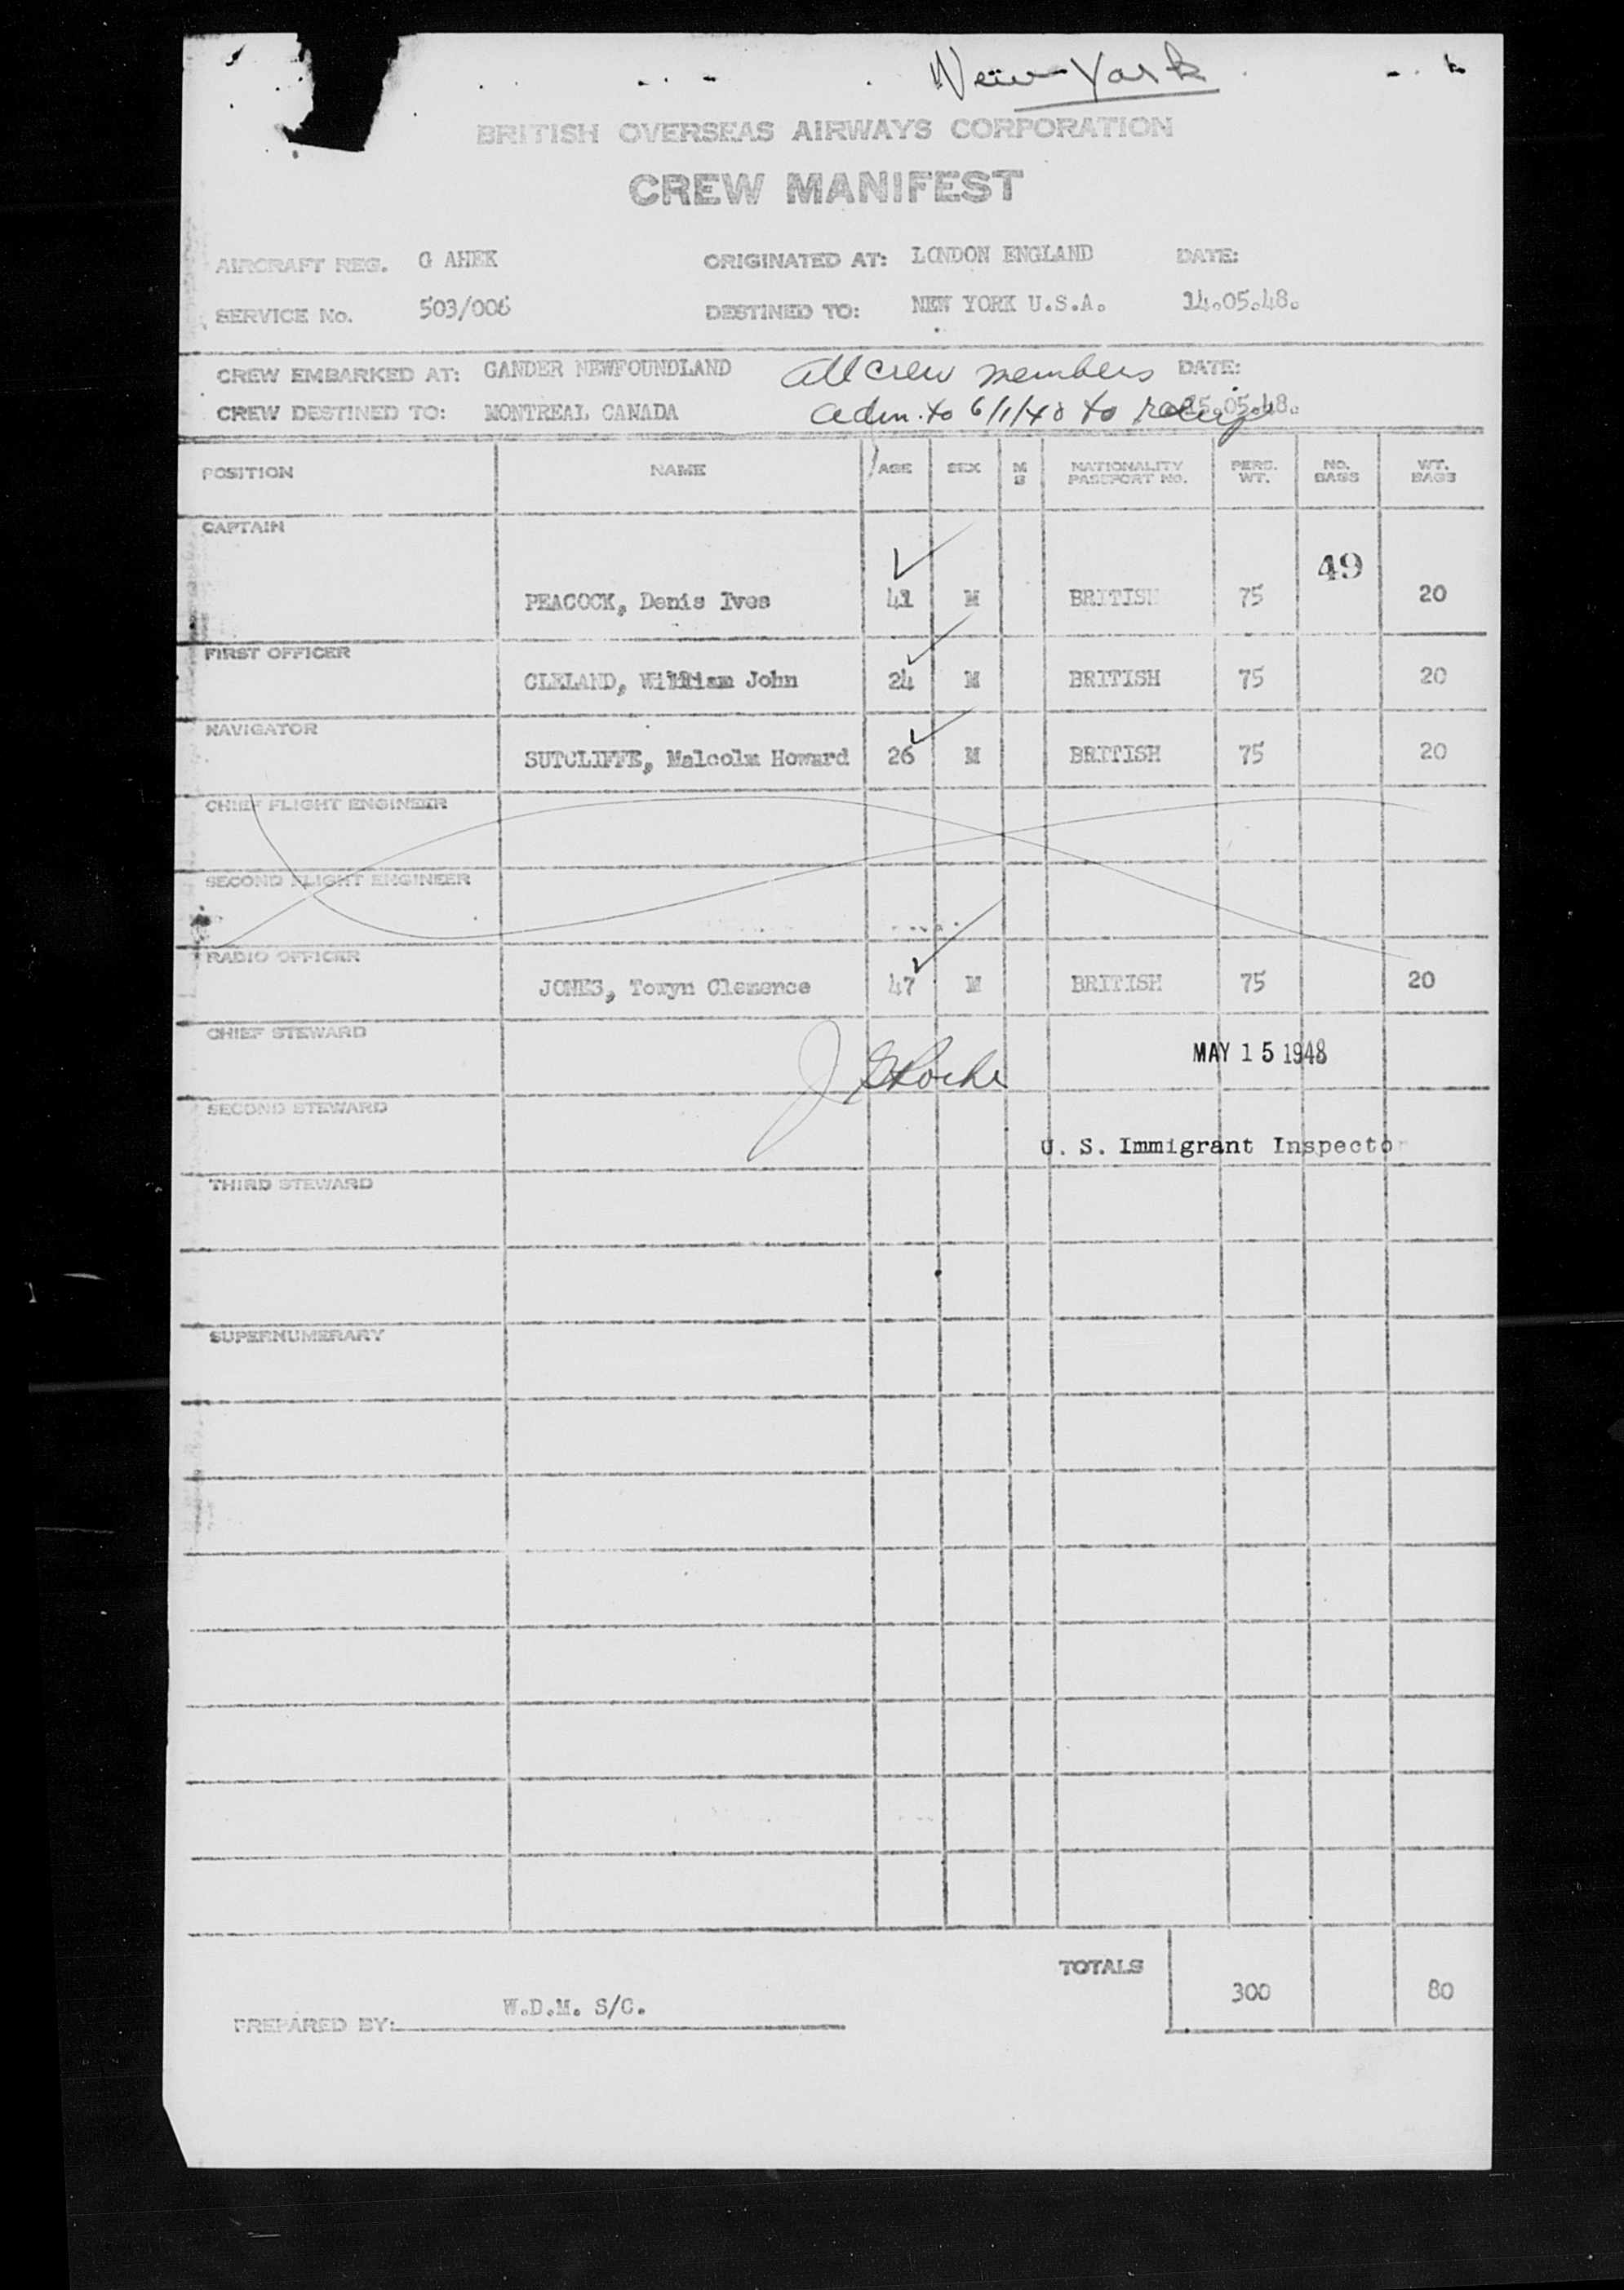 New York
BRITISH OVERSEAS AIRWAYS CORPORATION
CREW MANIFEST
AIRCRAFT REG. G AHEK ORIGINATED AT: LONDON ENGLAND DATE:
SERVICE No. 503/006 DESTINED TO: NEW YORK U.S.A. 14.05.48.
CREW EMBARKED AT: GANDER NEWFOUNDLAND All crew members DATE:
CREW DESTINED TO: MONTREAL CANADA adm. to 6/1/48 to 15.05.48.
POSITION NAME AGE SEX M S NATIONALITY PASSPORT NO. PERS. WT. NO. BAGS WT. BAGS
CAPTAIN
49
PEACOCK, Denis Ives 41 M BRITISH 75 20
FIRST OFFICER
CLELAND, William John 24 M BRITISH 75 20
NAVIGATOR
SUTCLIFFE, Malcolm Howard 26 M BRITISH 75 20
CHIEF FLIGHT ENGINEER
SECOND FLIGHT ENGINEER
RADIO OFFICER
JONES, Towyn Clemence 47 M BRITISH 75 20
CHIEF STEWARD
J Roche MAY 15 1948
SECOND STEWARD
U. S. Immigrant Inspector
THIRD STEWARD
SUPERNUMERARY
TOTALS 300 80
PREPARED BY: W.D.M. S/C.